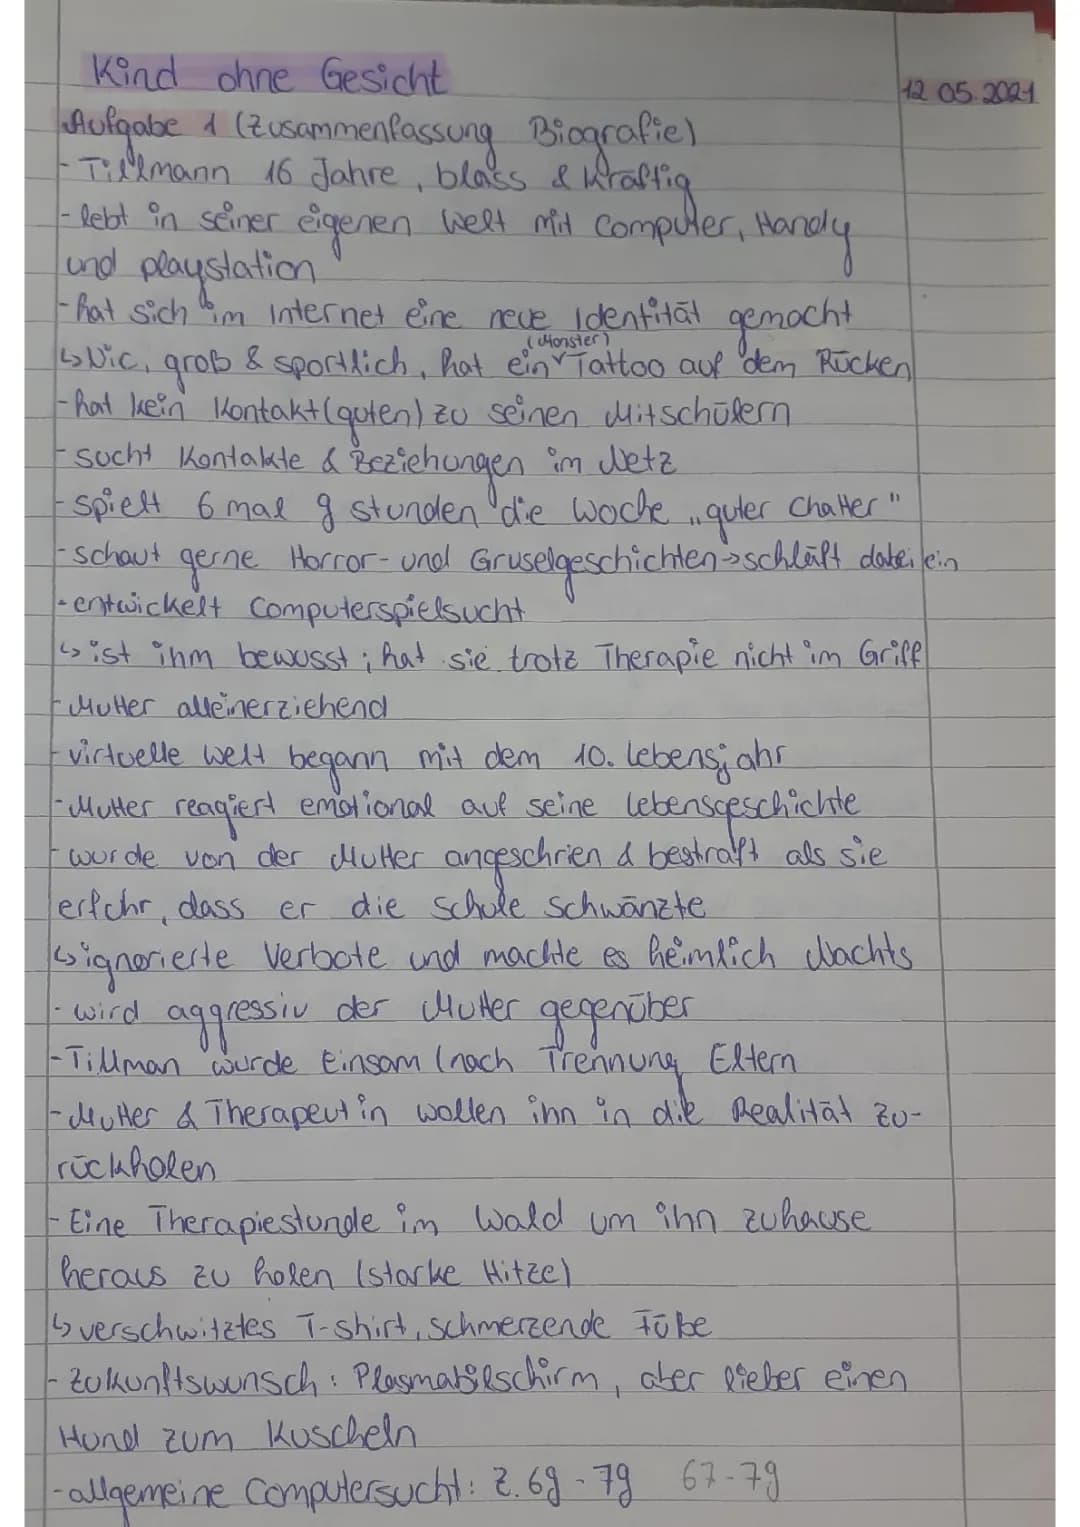 Kind ohne Gesicht
12 05.2021
Aufgabe 1 (Zusammenfassung Biografie)
- Tillmann 16 Jahre, blass & kräftig
- lebt in seiner eigenen Welt mit Computer, Handy
und playstation
- hat sich im Internet eine neue Identität gemacht
(Monster)
↳ Nic, groß & sportlich, hat ein Tattoo auf dem Rücken
- hat kein Kontakt (guten) zu seinen Mitschülern
- sucht Kontakte & Beziehungen im Netz
- spielt 6 mal 9 stunden die Woche „guter Chatter"
- schaut gerne Horror- und Gruselgeschichten → schläft dabei ein
- entwickelt Computerspielsucht
↳ ist ihm bewusst; hat sie trotz Therapie nicht im Griff
- Mutter alleinerziehend
- virtuelle Welt begann mit dem 10. Lebensjahr
- Mutter reagiert emotional auf seine Lebensgeschichte
- wurde von der Mutter angeschrien & bestraft als sie
erfuhr, dass er die Schule schwänzte
↳ ignorierte Verbote und machte es heimlich Nachts
- wird aggressiv der Mutter gegenüber
- Tillman wurde Einsam (nach Trennung Eltern
- Mutter & Therapeutin wollen ihn in die Realität zu-
rückholen
- Eine Therapiestunde im Wald um ihn zuhause
heraus zu holen (starke Hitze)
↳ verschwitztes T-shirt, schmerzende Füße
- Zukunftswunsch: Plasmabilschirm, aber lieber einen
Hund zum Kuscheln
- allgemeine Computersucht: Z. 69 - 79 67-79